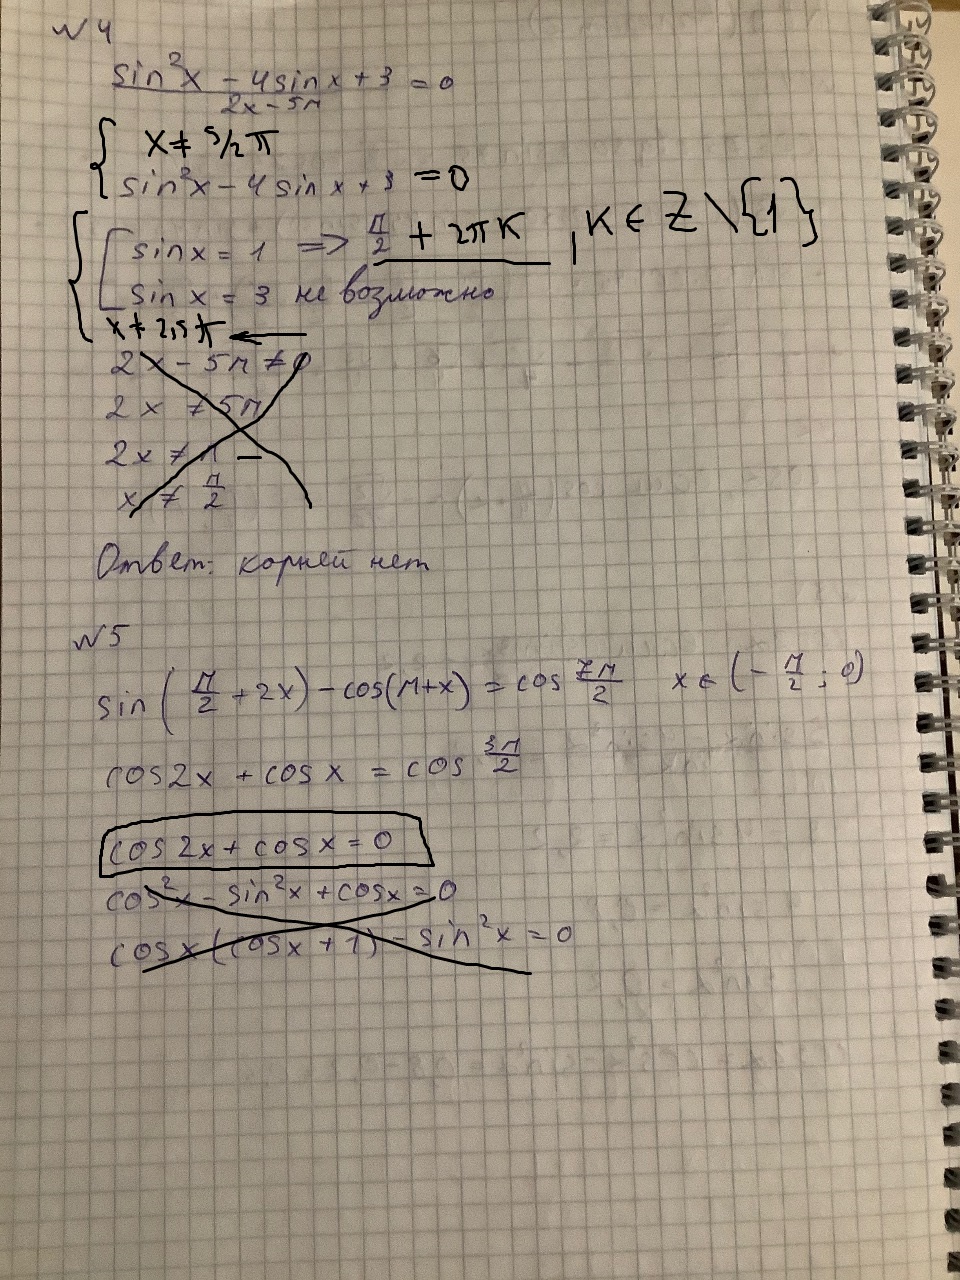 №4
sin²x - 4sinx + 3 = 0
2x - 5π
x ≠ 5/2 π
sin²x - 4 sin x + 3 = 0
sin x = 1 => π/2 + 2πk, k ∈ Z \ {1}
sin x = 3 не возможно
x ≠ 2,5π
2x - 5π ≠ 0
2x ≠ 5π
2x ≠ π
x ≠ π/2
Ответ: корней нет
№5
sin(π/2 + 2x) - cos(π+x) = cos 7π/2 x ∈ (-π/2; 0)
cos2x + cos x = cos 3π/2
cos 2x + cos x = 0
cos²x - sin²x + cosx = 0
cos x (cosx + 1) - sin²x = 0